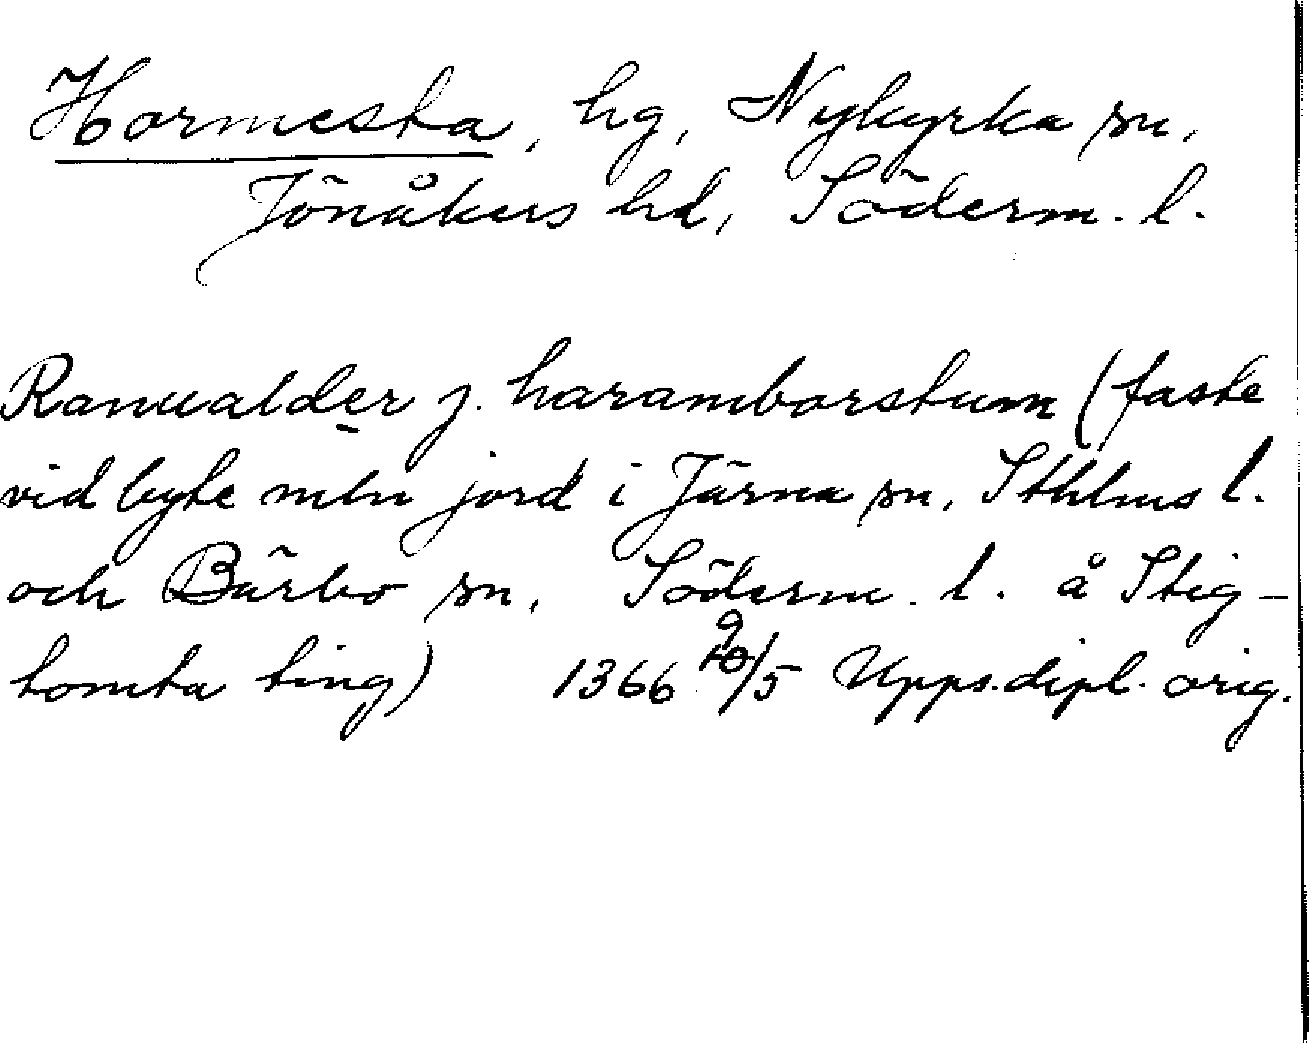 Hormesta, hg, Nykyrka sn,
Jönåkers hd, Söderm. l.
Ranualder j. haramborstum (faste
vid byte mln jord i Järna sn, Sthlms l.
och Bärbo sn, Söderm. l. å Stig-
tomta ting) 1366 9/5 Upps.dipl. orig.